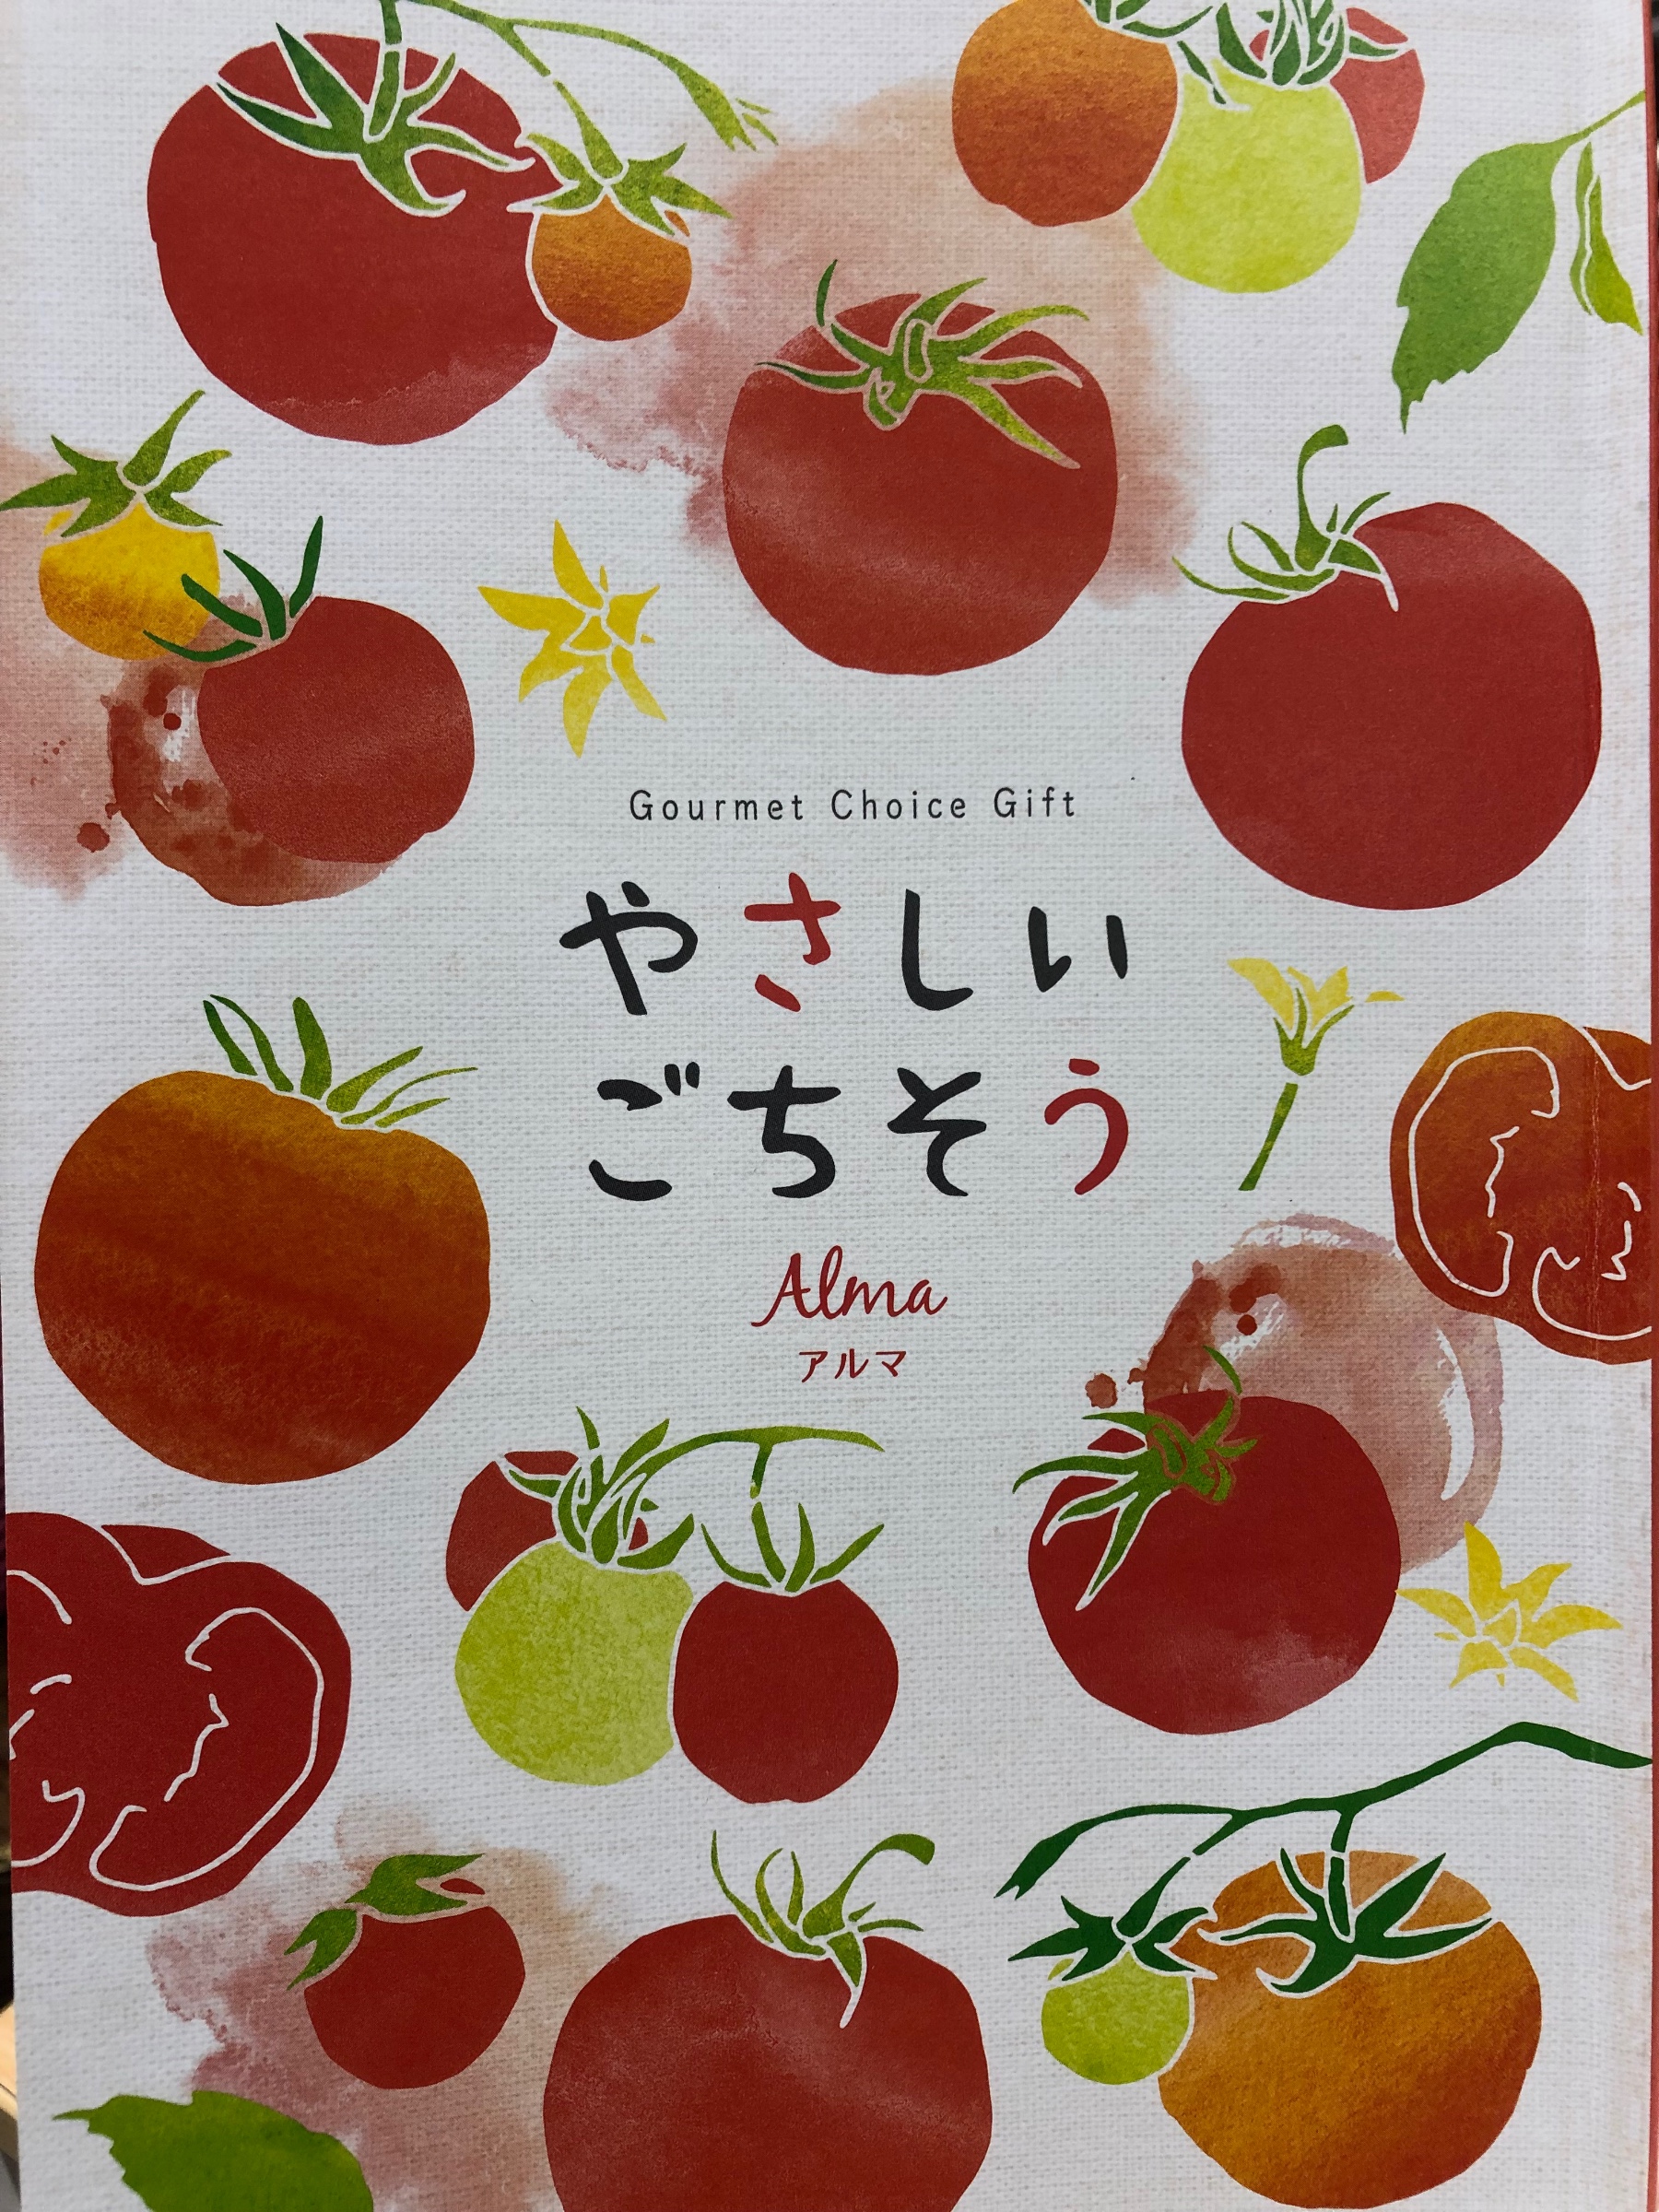 Gourmet Choice Gift
やさしい
ごちそう
Alma
アルマ